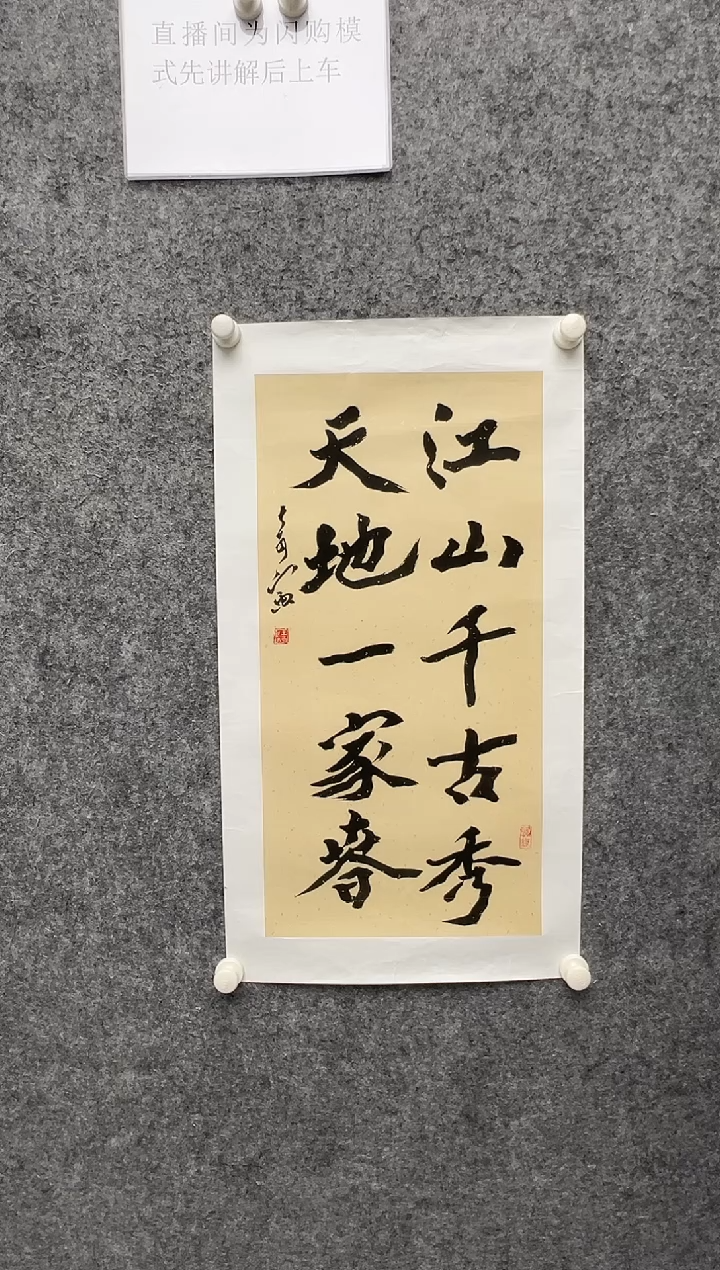 直播间为闪购模
式先讲解后上车
江山千古秀
天地一家春